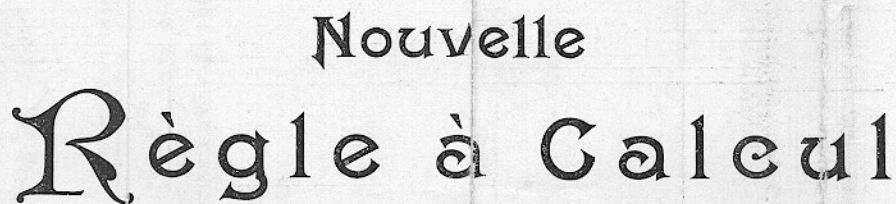 Nouvelle
Règle à Calcul